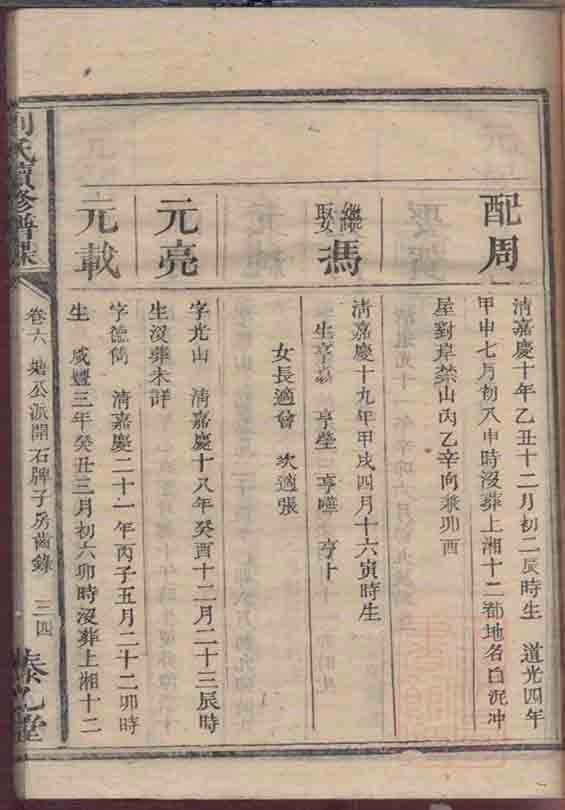 配周
清嘉慶十年乙丑十二月初二辰時生 道光四年
甲申七月初八申時沒葬上湘十二都地名白泥冲
屋對岸禁山丙乙辛向兼卯酉
繼娶馮
清嘉慶十九年甲戌四月十六寅時生
生亨 亨瑩 亨曄 亨十
女長適曾 次適張
元亮
字光山 清嘉慶十八年癸酉十二月二十三辰時
生沒葬未詳
元載
字德儁 清嘉慶二十一年丙子五月二十二卯時
生 咸豐三年癸丑三月初六卯時沒葬上湘十二
氏續修譜
卷六 塘公派開石牌子房齒錄 三四
堂